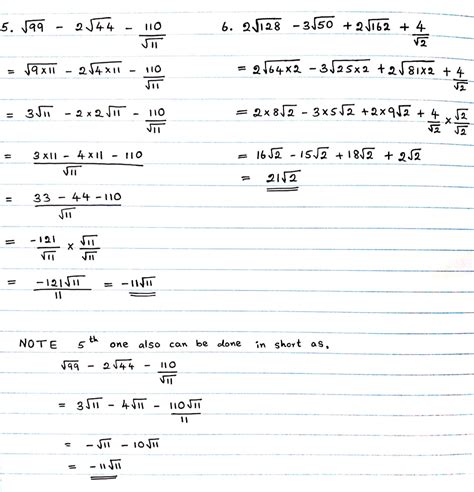 5. √99 - 2√44 - 110/√11
= √9×11 - 2√4×11 - 110/√11
= 3√11 - 2×2√11 - 110/√11
= (3×11 - 4×11 - 110)/√11
= (33 - 44 - 110)/√11
= -121/√11 × √11/√11
= -121√11/11 = -11√11
6. 2√128 - 3√50 + 2√162 + 4/√2
= 2√64×2 - 3√25×2 + 2√81×2 + 4/√2
= 2×8√2 - 3×5√2 + 2×9√2 + 4/√2 × √2/√2
= 16√2 - 15√2 + 18√2 + 2√2
= 21√2
NOTE 5th one also can be done in short as,
√99 - 2√44 - 110/√11
= 3√11 - 4√11 - 110√11/11
= -√11 - 10√11
= -11√11